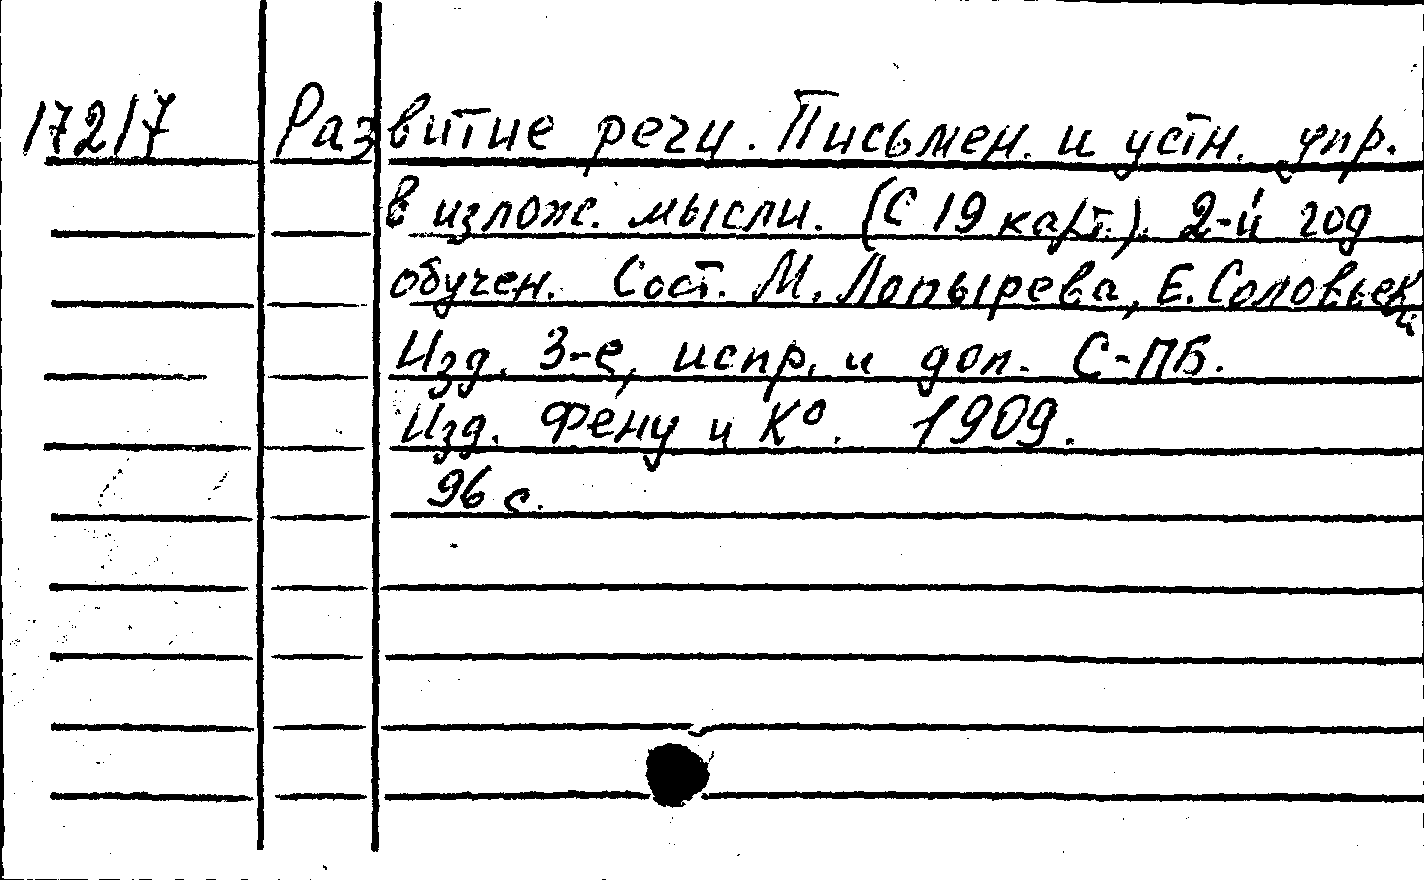 17217 Развитие речи. Письмен. и устн. упр.
в излож. мысли. (С 19 карт.). 2-й год
обучен. Сост. М. Лопырева, Е. Соловьек
Изд. 3-е, испр. и доп. С-ПБ.
Изд. Фену и К°. 1909.
96 с.